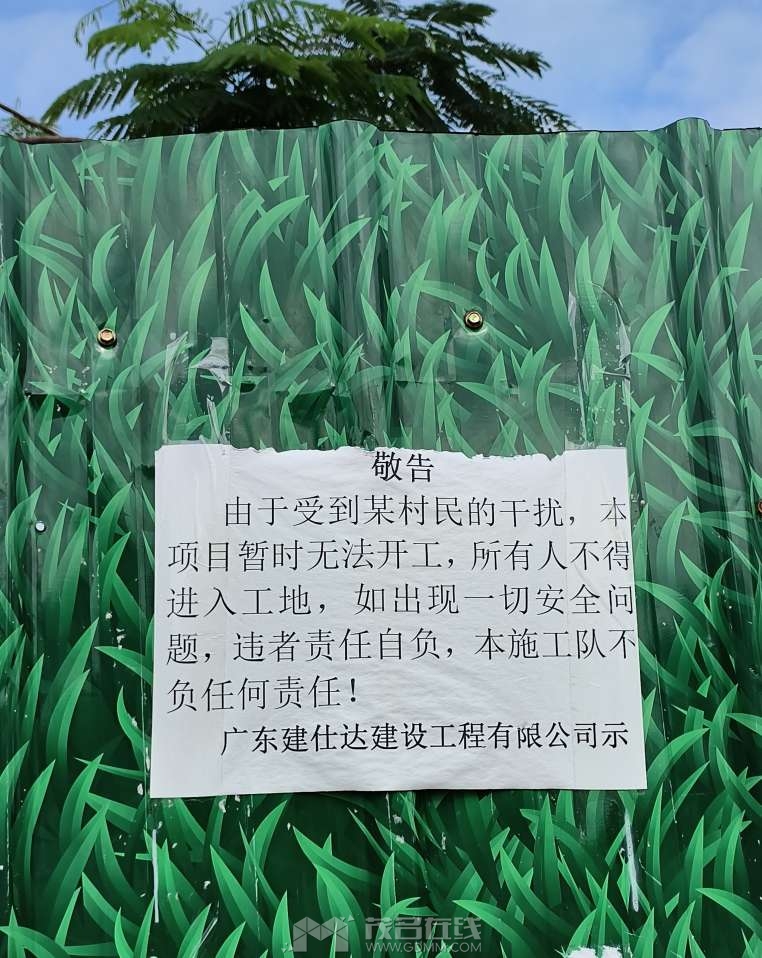 敬告
由于受到某村民的干扰，本
项目暂时无法开工，所有人不得
进入工地，如出现一切安全问
题，违者责任自负，本施工队不
负任何责任！
广东建仕达建设工程有限公司示
茂名在线
WWW.GDMM.COM